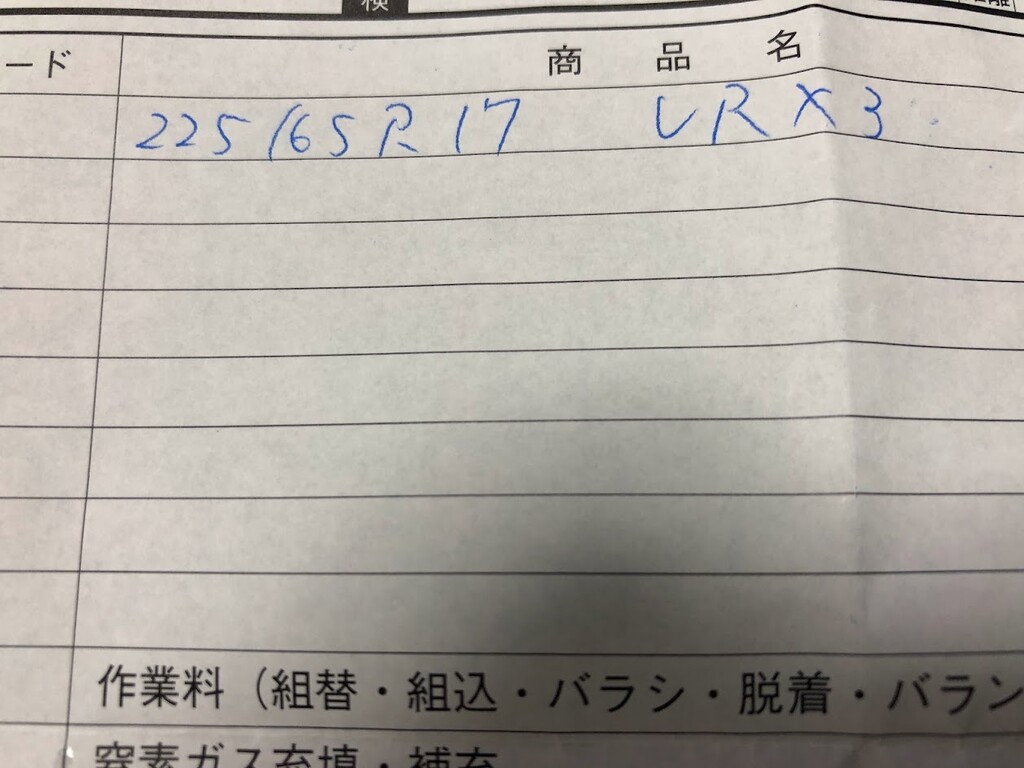 検
ード 商品名
225/65R17 VRX3
作業料（組替・組込・バラシ・脱着・バラン
窒素ガス充填・補充